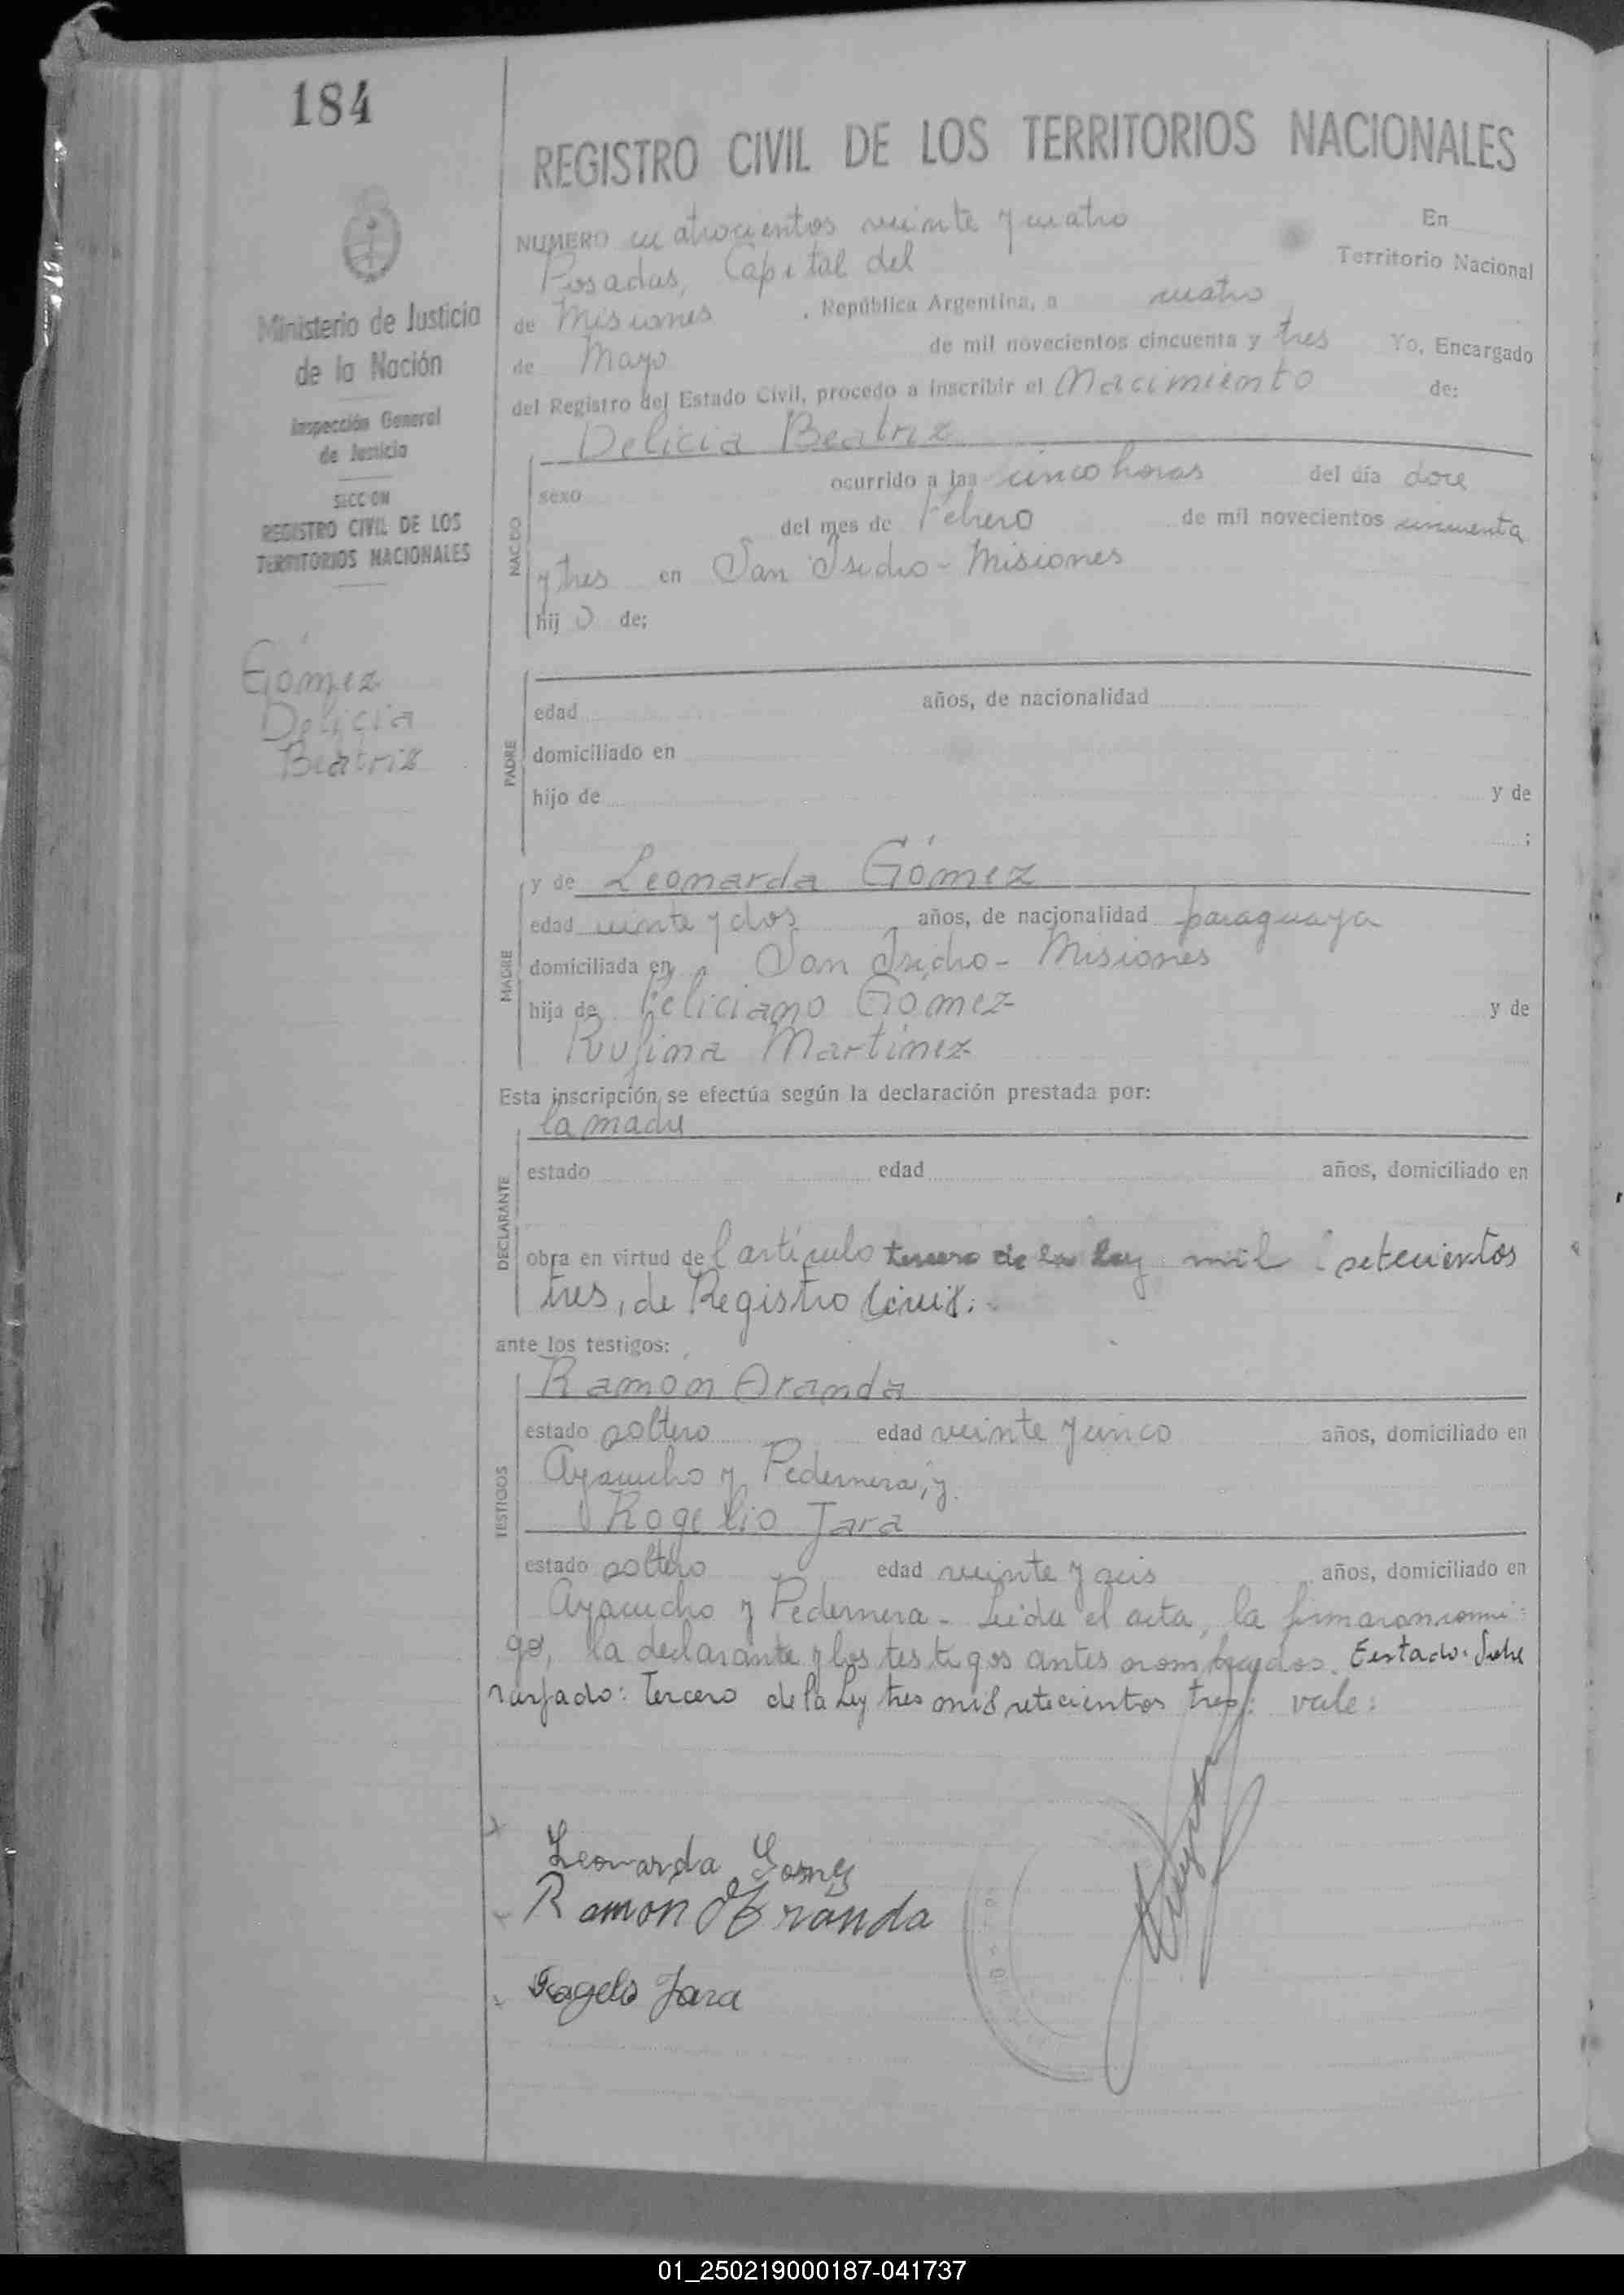 184
REGISTRO CIVIL DE LOS TERRITORIOS NACIONALES
NUMERO cuatrocientos veinte y cuatro En
Posadas, Capital del Territorio Nacional
de Misiones, República Argentina, a cuatro
de Mayo de mil novecientos cincuenta y tres Yo, Encargado
del Registro del Estado Civil, procedo a inscribir el Nacimiento de:
Delicia Beatriz
NACIDO
sexo ocurrido a las cinco horas del día doce
del mes de Febrero de mil novecientos cincuenta
y tres en San Isidro - Misiones
hij o de;
Ministerio de Justicia
de la Nación
Inspección General
de Justicia
SECCION
REGISTRO CIVIL DE LOS
TERRITORIOS NACIONALES
Gómez
Delicia
Beatriz
PADRE
edad años, de nacionalidad
domiciliado en
hijo de y de
;
MADRE
y de Leonarda Gómez
edad veinte y dos años, de nacionalidad paraguaya
domiciliada en San Isidro - Misiones
hija de Feliciano Gómez y de
Rufina Martínez
Esta inscripción se efectúa según la declaración prestada por:
DECLARANTE
la madre
estado edad años, domiciliado en
obra en virtud del artículo tercero de la ley mil setecientos
tres, de Registro Civil.
ante los testigos:
TESTIGOS
Ramón Aranda
estado soltero edad veinte y cinco años, domiciliado en
Ayacucho y Pedernera, y
Rogelio Jara
estado soltero edad veinte y seis años, domiciliado en
Ayacucho y Pedernera - Leída el acta, la firmaron conmi-
go, la declarante y los testigos antes nombrados. Sobre
raspado: Tercero de la Ley tres mil setecientos tres: vale:
Leonarda Gomez
Ramon Aranda
Rogelo Jara
01_250219000187-041737